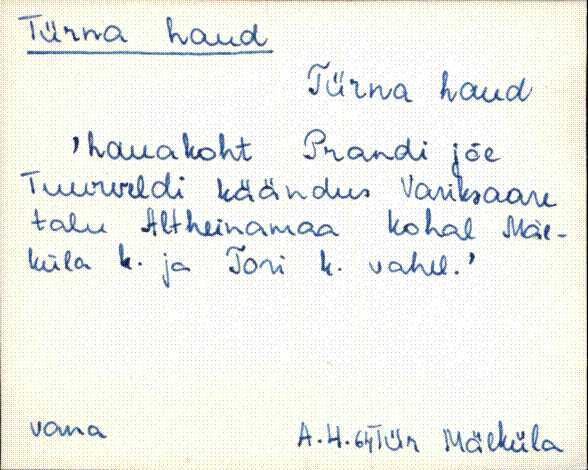 Türna haud
Türna haud
'hauakoht Prandi jõe
käändus Variksaare
talu Altheinamaa kohal Mäe-
küla k. ja Tori k. vahel.'
vana
A.H. 64 Tür Mäeküla